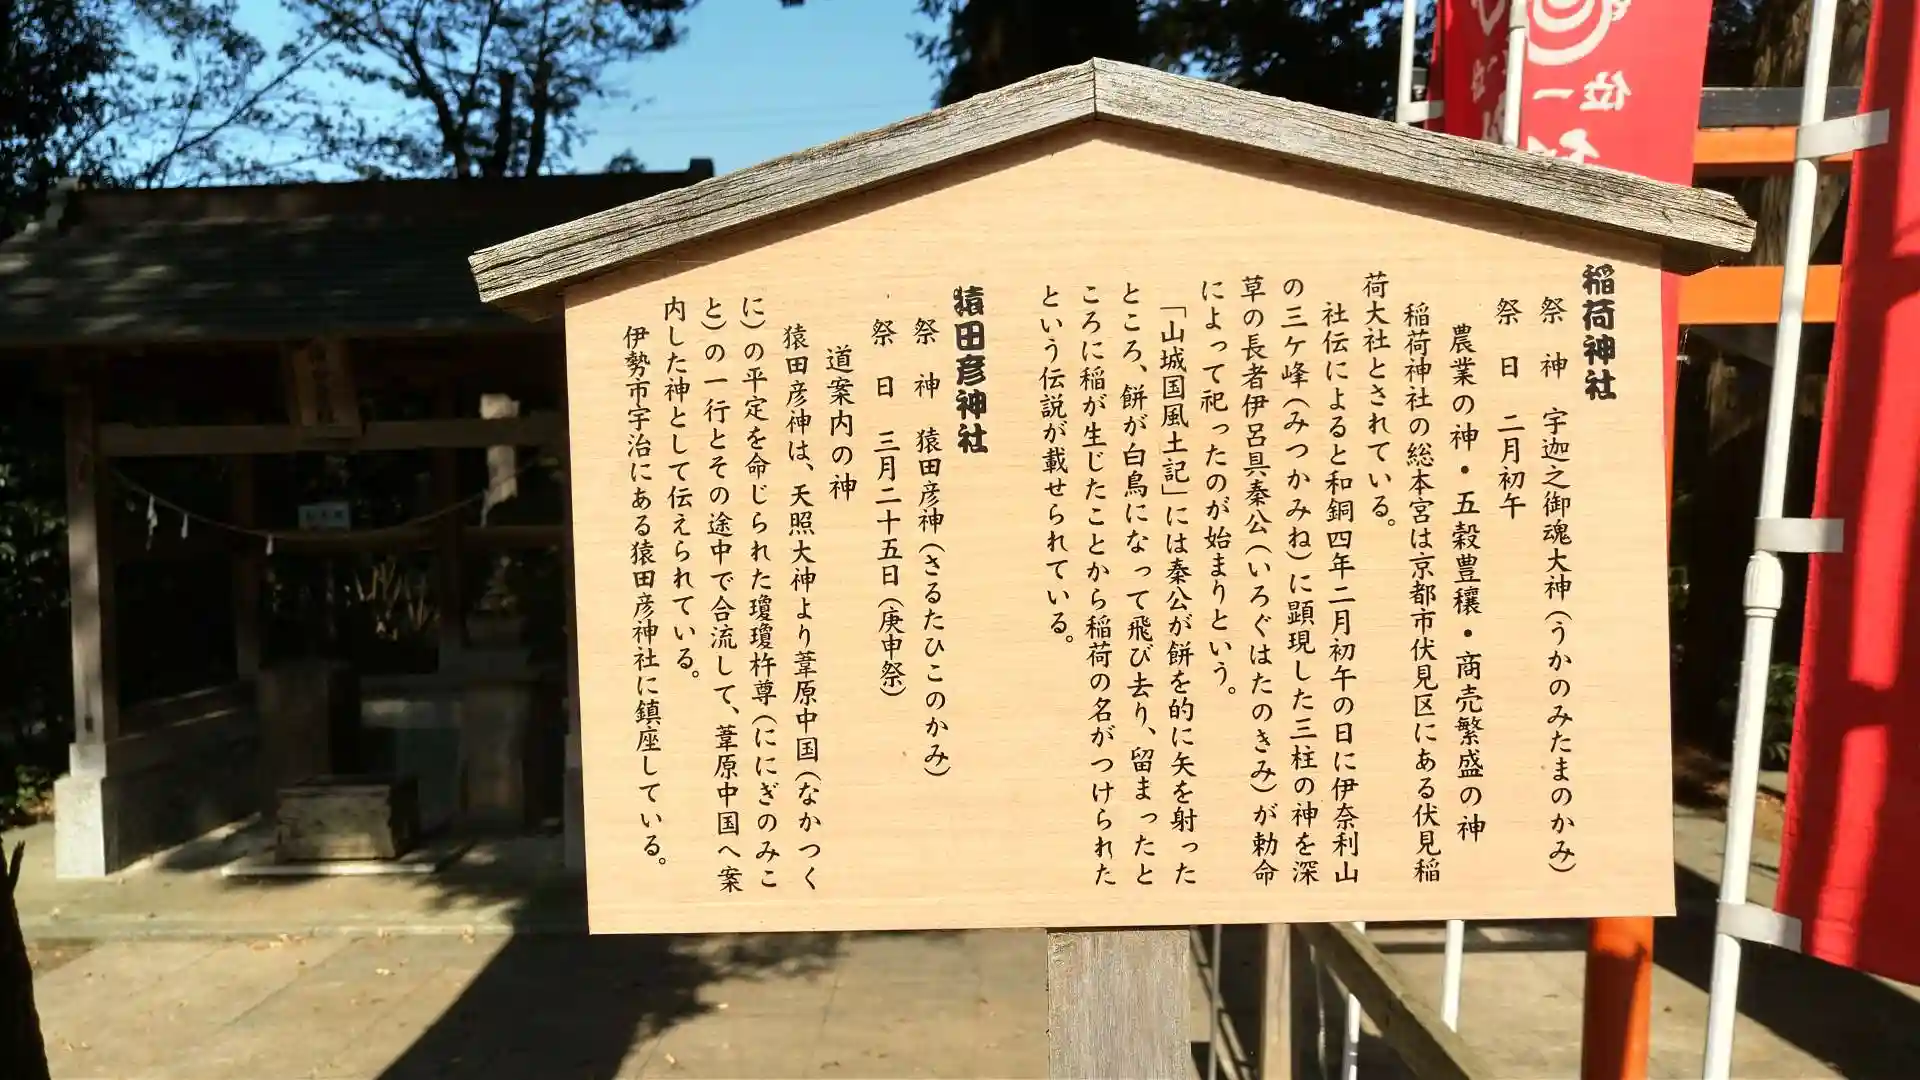 稲荷神社
祭 神 宇迦之御魂大神(うかのみたまのかみ)
祭 日 二月初午
農業の神・五穀豊穰・商売繁盛の神
稲荷神社の総本宮は京都市伏見区にある伏見稲
荷大社とされている。
社伝によると和銅四年二月初午の日に伊奈利山
の三ケ峰(みつかみね)に顕現した三柱の神を深
草の長者伊呂具秦公(いろぐはたのきみ)が勅命
によって祀ったのが始まりという。
「山城国風土記」には秦公が餅を的に矢を射った
ところ、餅が白鳥になって飛び去り、留まったと
ころに稲が生じたことから稲荷の名がつけられた
という伝説が載せられている。
猿田彦神社
祭 神 猿田彦神(さるたひこのかみ)
祭 日 三月二十五日(庚申祭)
道案内の神
猿田彦神は、天照大神より葦原中国(なかつく
に)の平定を命じられた瓊瓊杵尊(ににぎのみこ
と)の一行とその途中で合流して、葦原中国へ案
内した神として伝えられている。
伊勢市宇治にある猿田彦神社に鎮座している。
位一